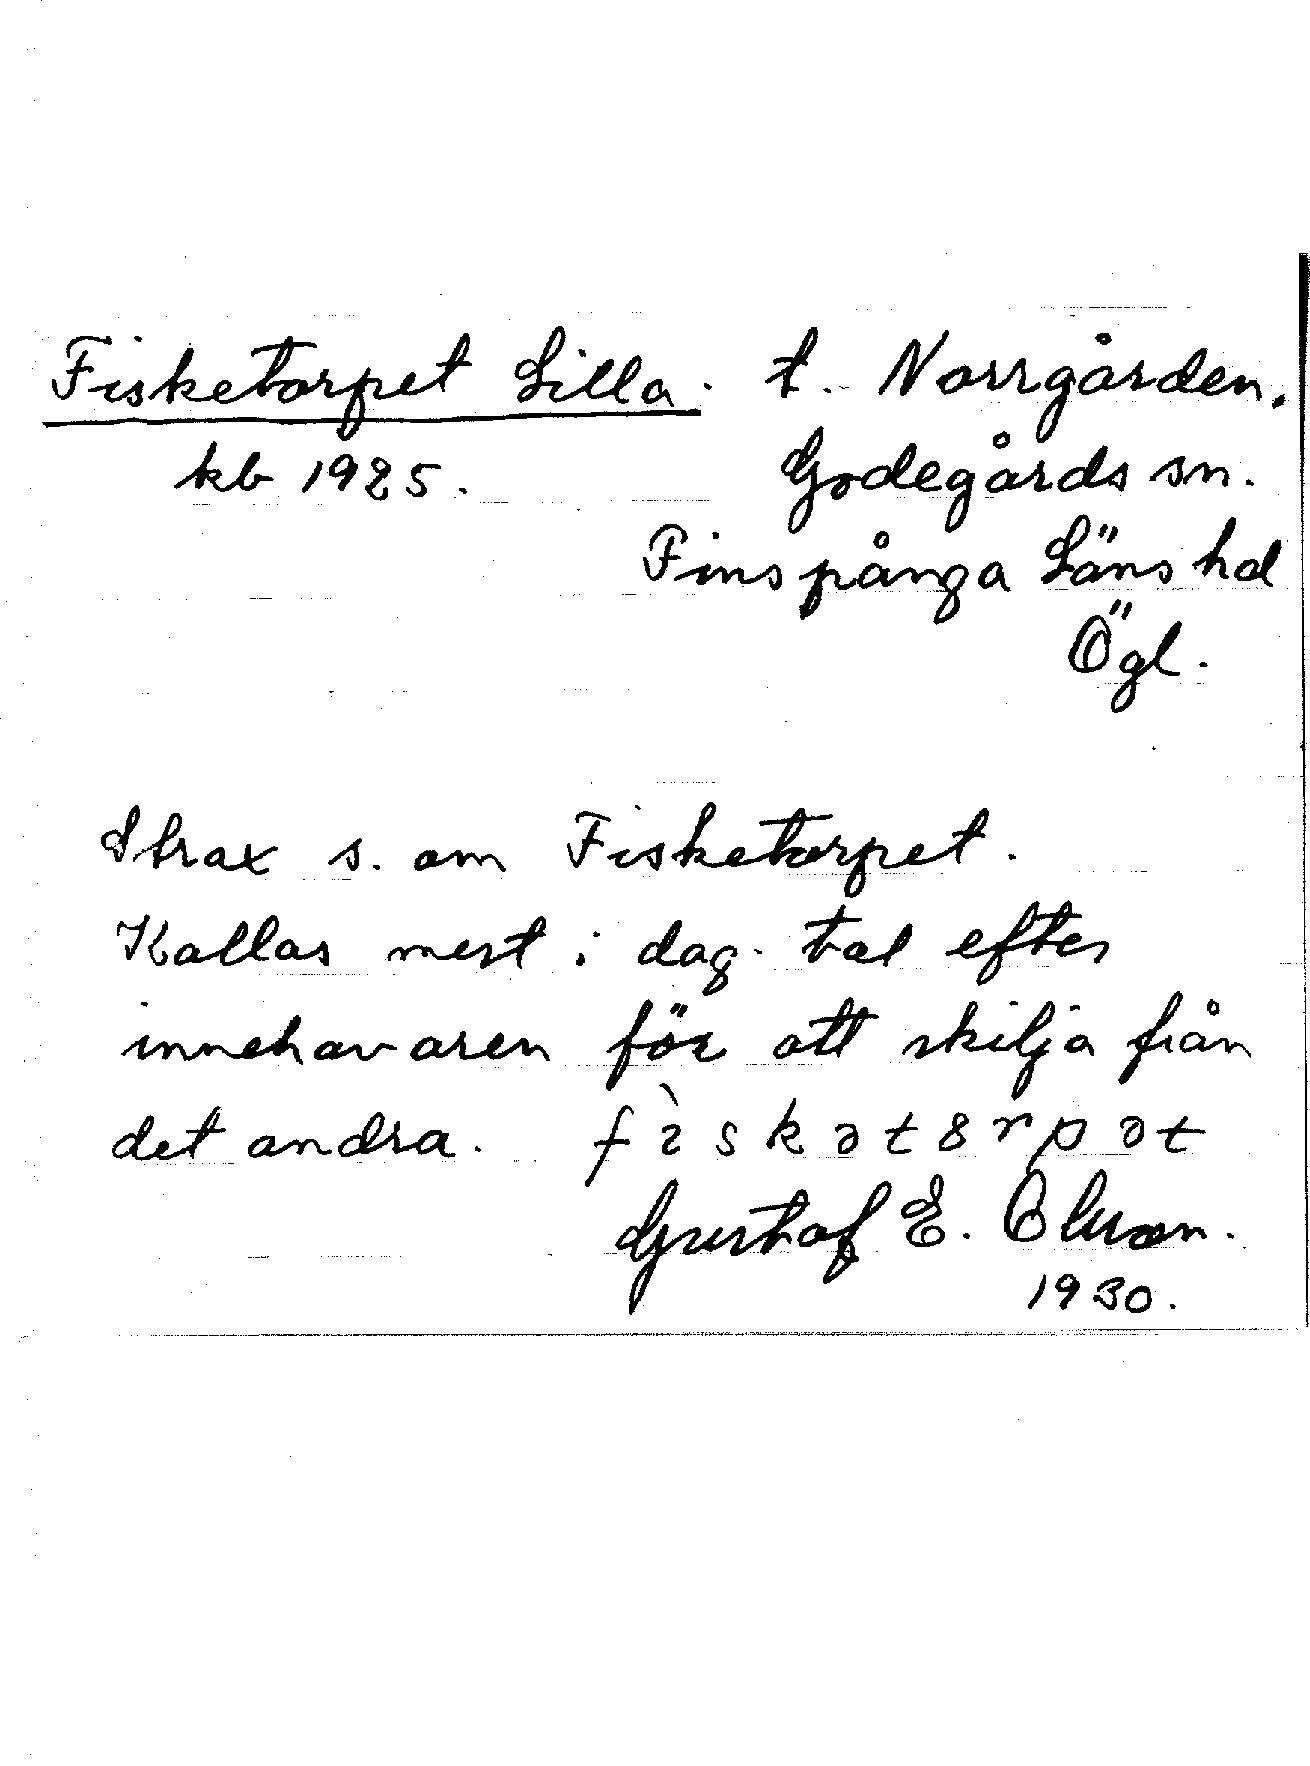 Fisketorpet Lilla. t. Norrgården.
kb 1925. Godegårds sn.
Finspånga Läns hd
Ögl.
Strax s. om Fisketorpet.
Kallas mest i dag. tal efter
innehavaren för att skilja från
det andra. fìskətȣrpət
Gustaf E. Olsson.
1930.